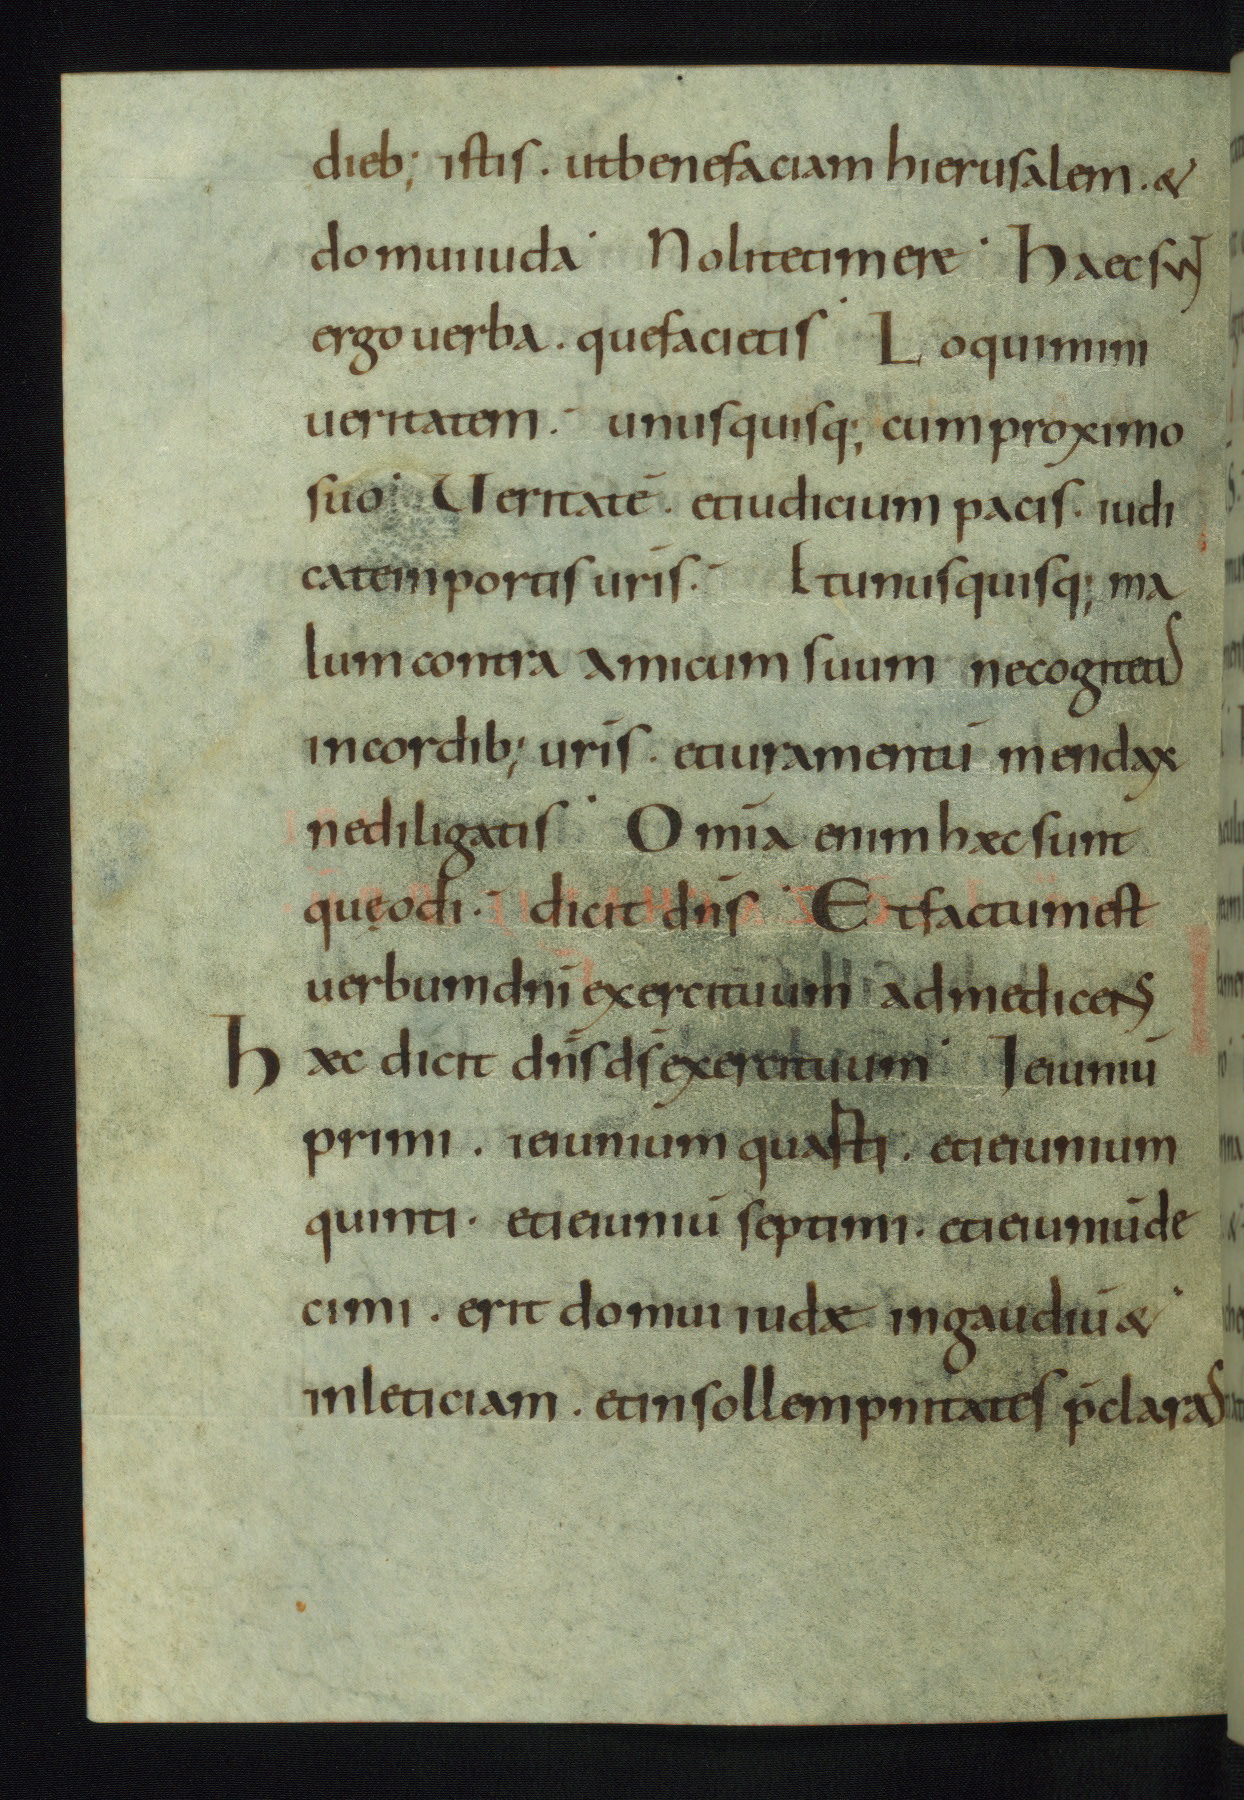 dieb; istis . utbenefaciam hierusalem . &
domuiuda Nolitetimere Haec sunt
ergo uerba . quefacietis Loquimini
ueritatem . unusquisq; cum proximo
suo Ueritatē . etiudicium pacis . iudi
catem portis uris̄ . Etunusquisq; ma
lum contra amicum suum necogitetis
incordib; uris̄ . etiuramentū mendax
nediligatis Omīa enim hæc sunt
quęodi . dicit dn̄s Etfactumest
uerbum dnī exercituum admedicens
Hæc dicit dn̄s ds̄ exercituum Ieiuniū
primi . ieiunium quarti . etieiunium
quinti . etieiuniū septimi . etieiuniū de
cimi . erit domui iudæ ingaudiū &
inleticiam . etinsollempnitates p̄claras